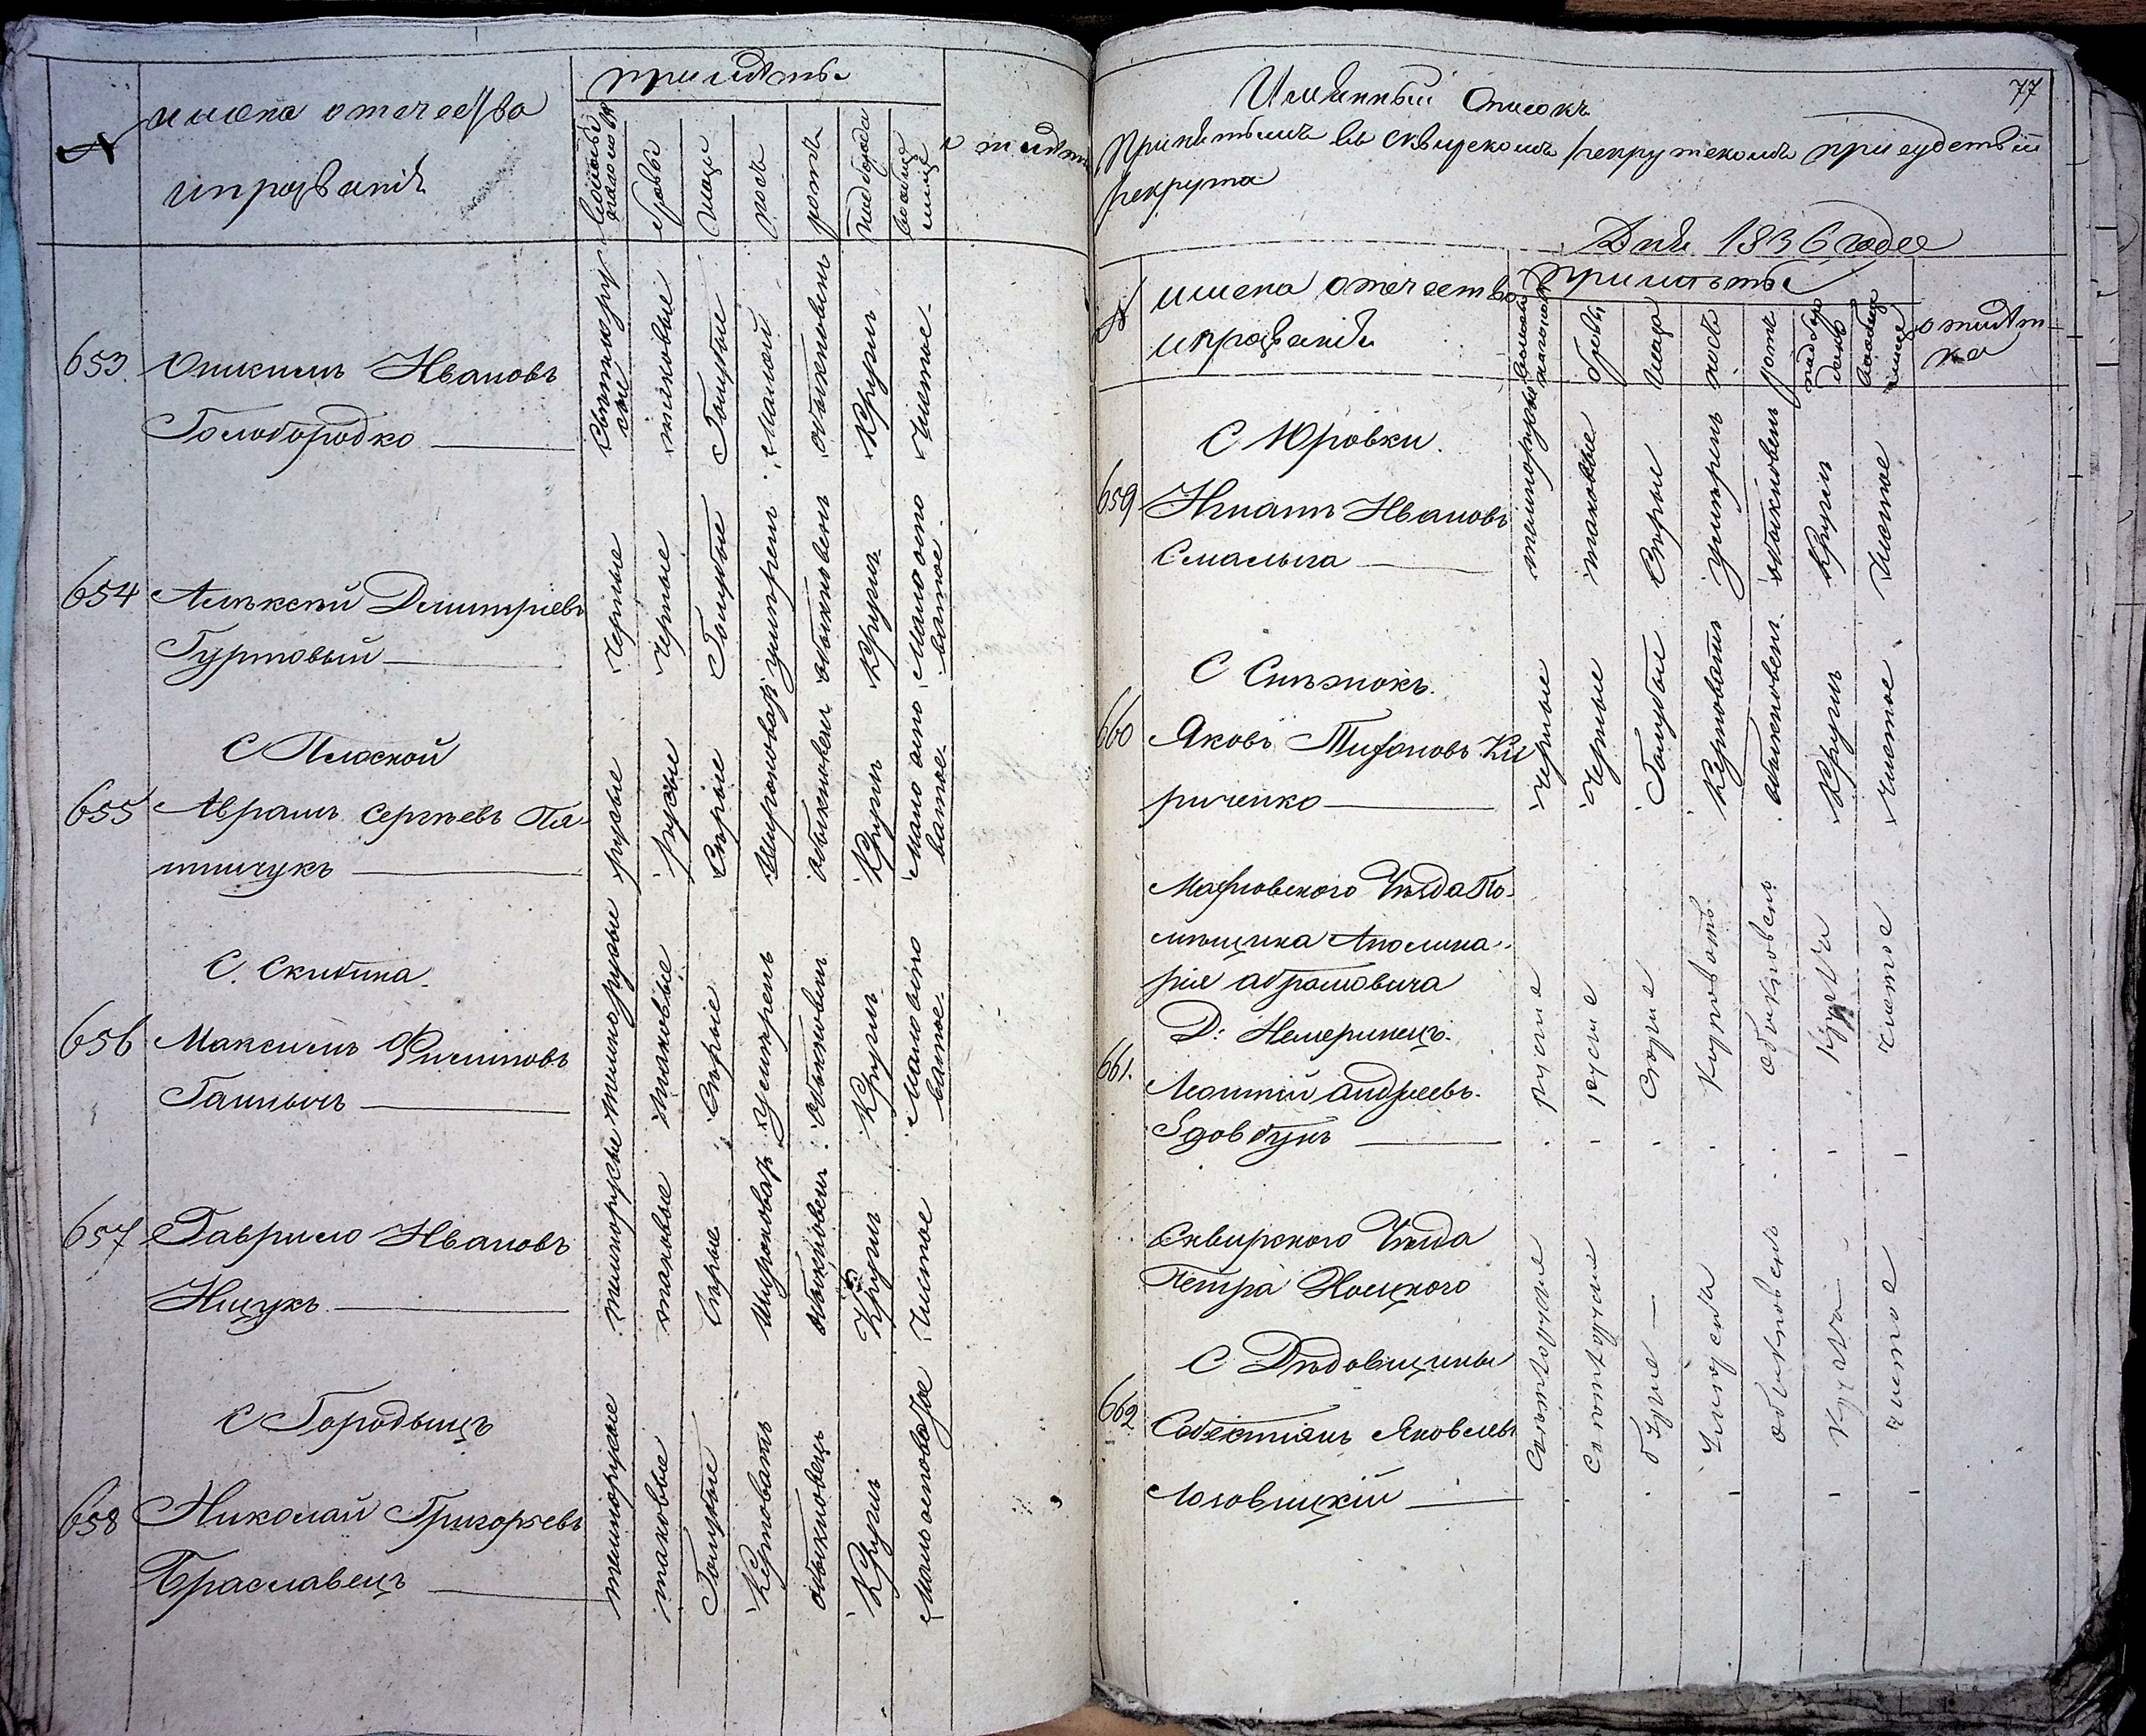 N
имена отчества
и прозванiя
приметы
волосы на голове
бровы
глаза
носъ
ротъ
подборода
вообще лице
отметк
653. Онисимъ Ивановъ
Голобородко
светлорусые
таковые
Голубые
малой
обыкновенъ
Круглъ
Чистое
654 Алѣксѣй Дмитрiевъ
Гуртовый
черные
черные
Голубые
умѣренъ
обыкновенъ
Круглъ
Мало остоватое
С Плоской
655 Аврамъ Сергѣевъ Пя-
тничукъ
русые
русые
Сѣрые
Широковатъ
обыкновенъ
Круглъ
Мало осповатое
С. Скибина
656 Максимъ Филиповъ
темнорусые
таковые
Сѣрые
умѣренъ
обыкновенъ
Круглъ
Мало осповатое
657 Гаврило Ивановъ
Ницукъ
темнорусые
таковые
Серые
Широковатъ
обыкновенъ
Круглъ
Чистое
С Городыщъ
658 Николай Григорьевъ
Браславецъ
темнорусые
таковые
Голубые
Керповатъ
обыкновенъ
Круглъ
Мало осповатое
77
Имянный Списокъ
Принятымъ въ Сквирскомъ рекрутскомъ присудствiи
рекрута
Дня 1836 года
N
имена отчества
и прозванiя
приметы
бровы
глаза
носъ
ротъ
подбородокъ
вообще лице
отмѣтка
С Юровки
659 Игнатъ Ивановъ
Смалыга
темнорусые
таковые
Сѣрые
умѣренъ
обыкновенъ
Круглъ
Чистое
С Снѣжокъ.
660 Яковъ Тифановъ Ки
риченко
черные
Черные
Голубые
Керповатъ
обыкновенъ
Круглъ
Чистое
уѣзда По-
мѣщика Аполина-
рiя Абрамовича
Д: Немеринецъ.
661. Леонтiй Андреевъ
Здовбунъ
русые
русые
Серые
Курповатъ
обыкновенъ
Чистое
Сквирского Уѣзда
Петра
С Дѣдовщины
662 Себестiянъ Яковлевъ
Лозовицкiй
обыкновенъ
чистое